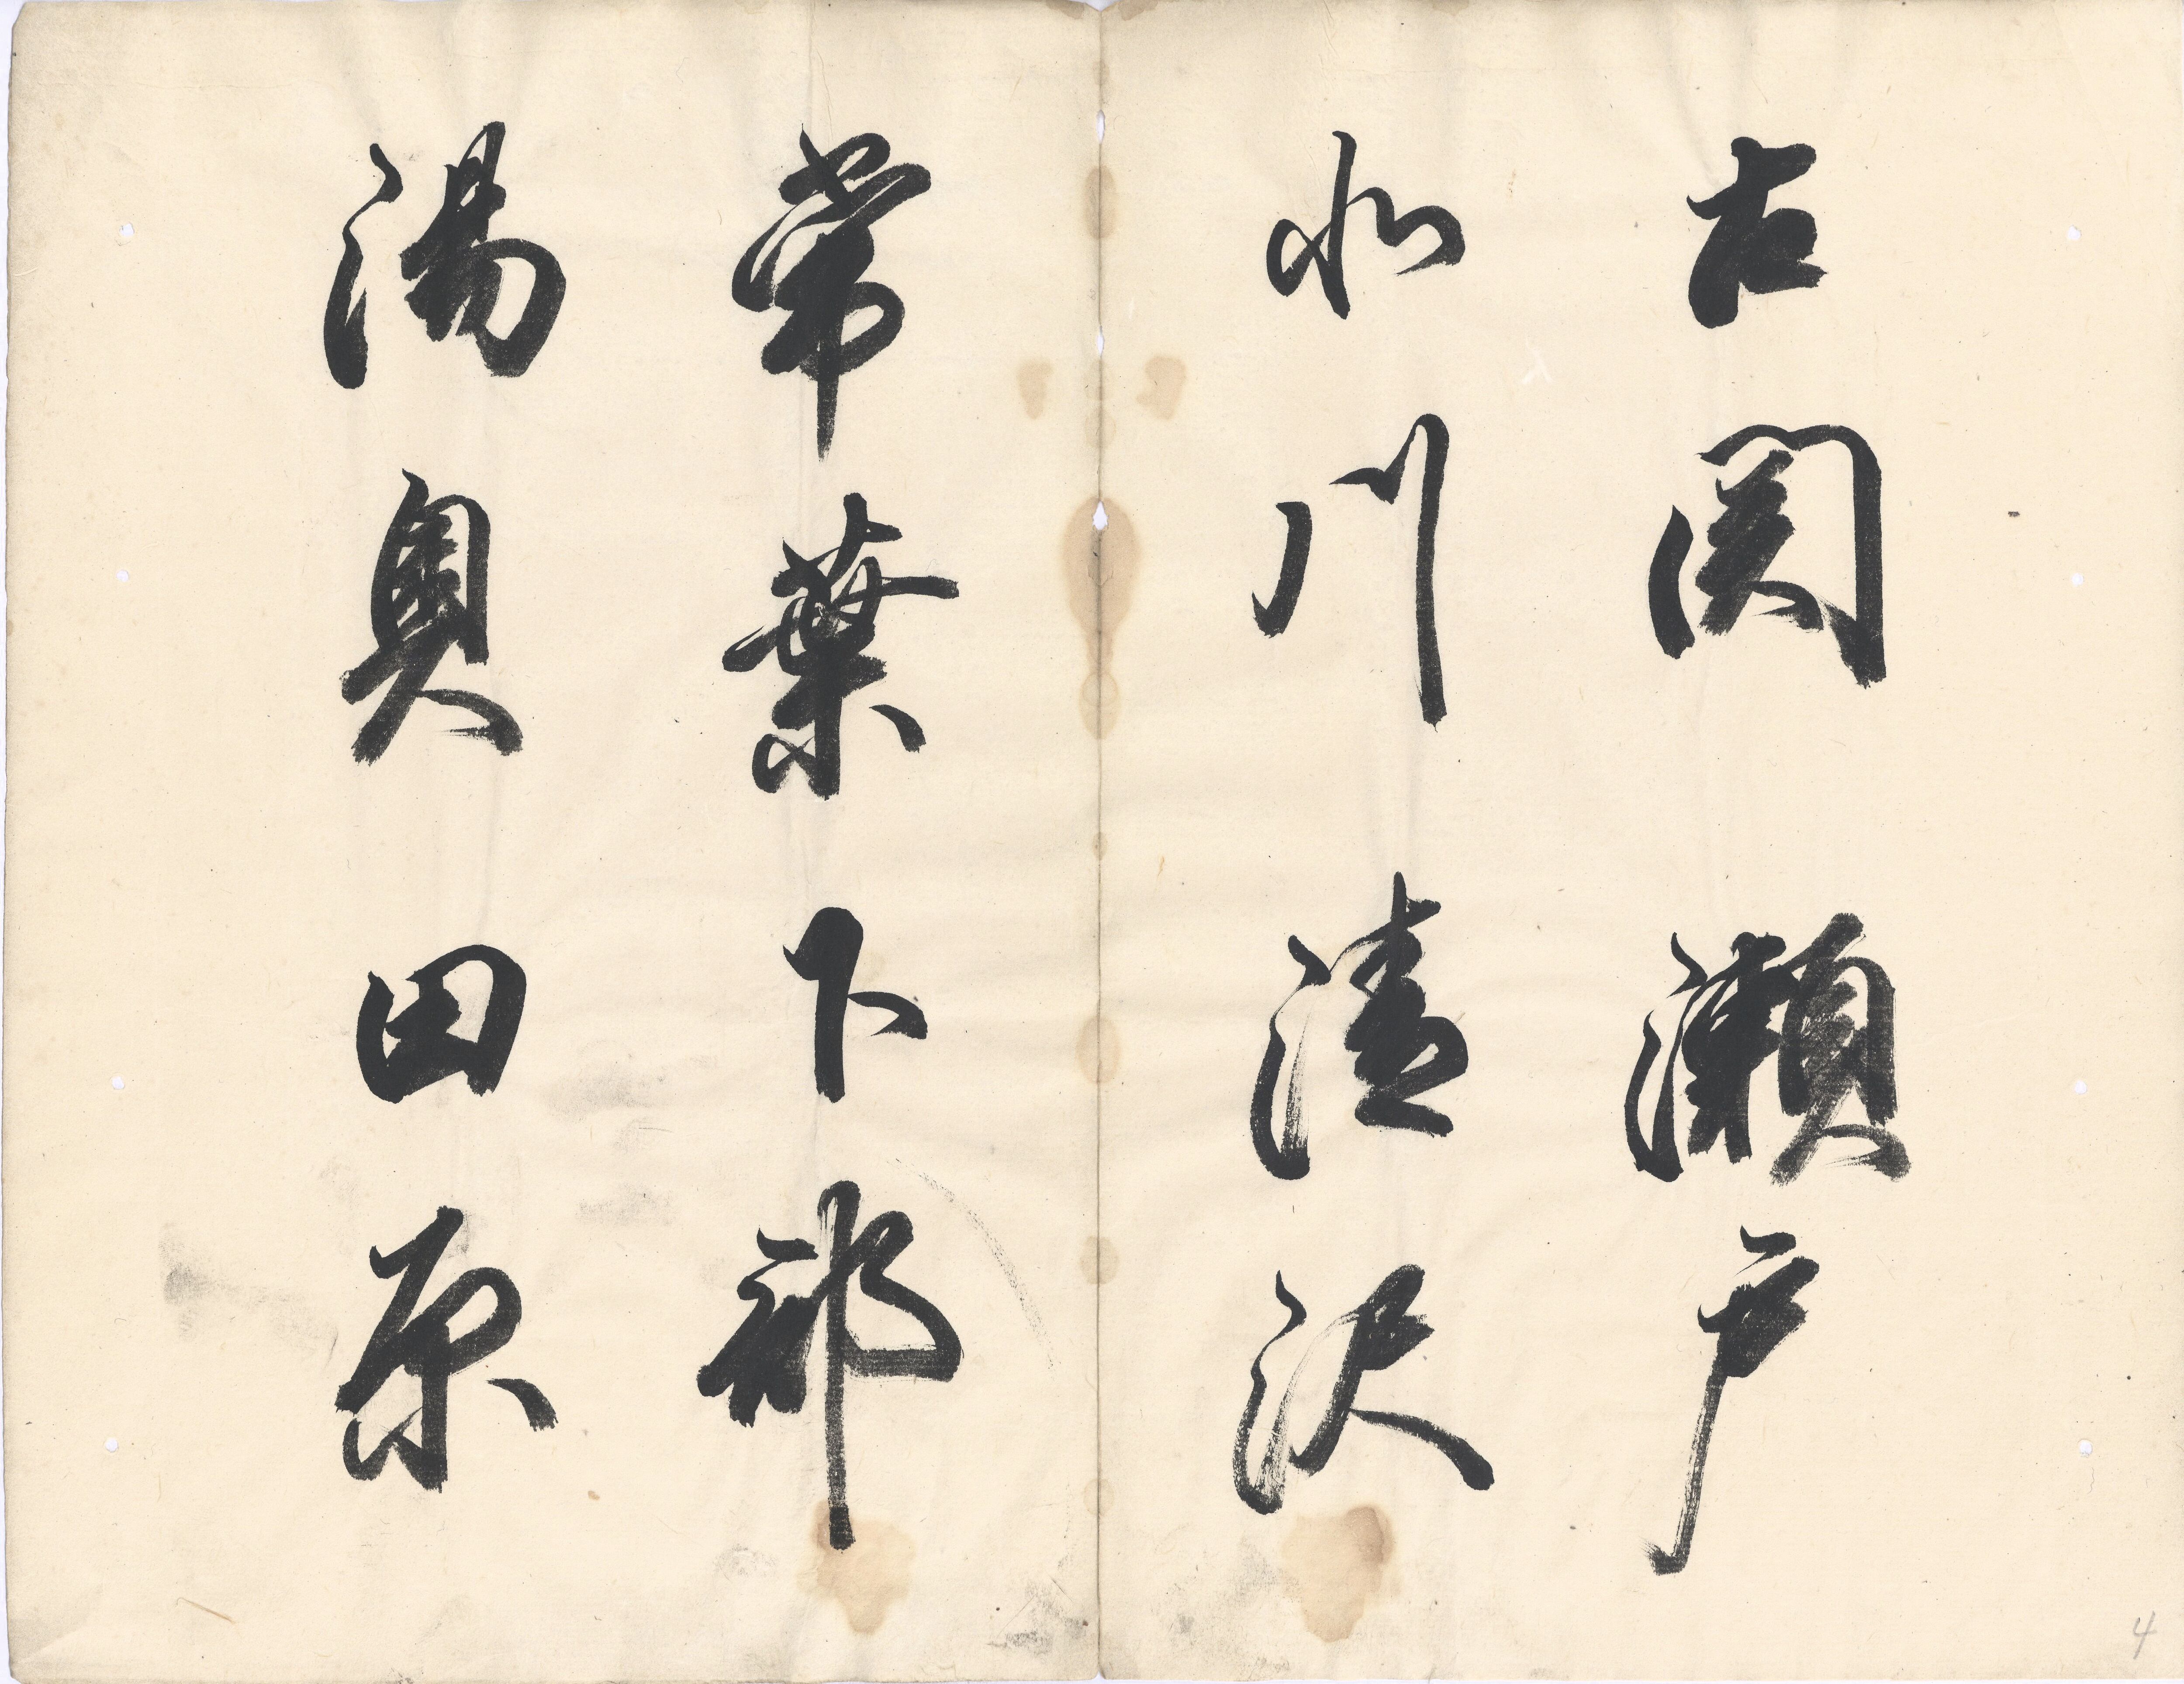 古関 瀬戸
北川 清沢
常葉 下部
湯奥 田原
4